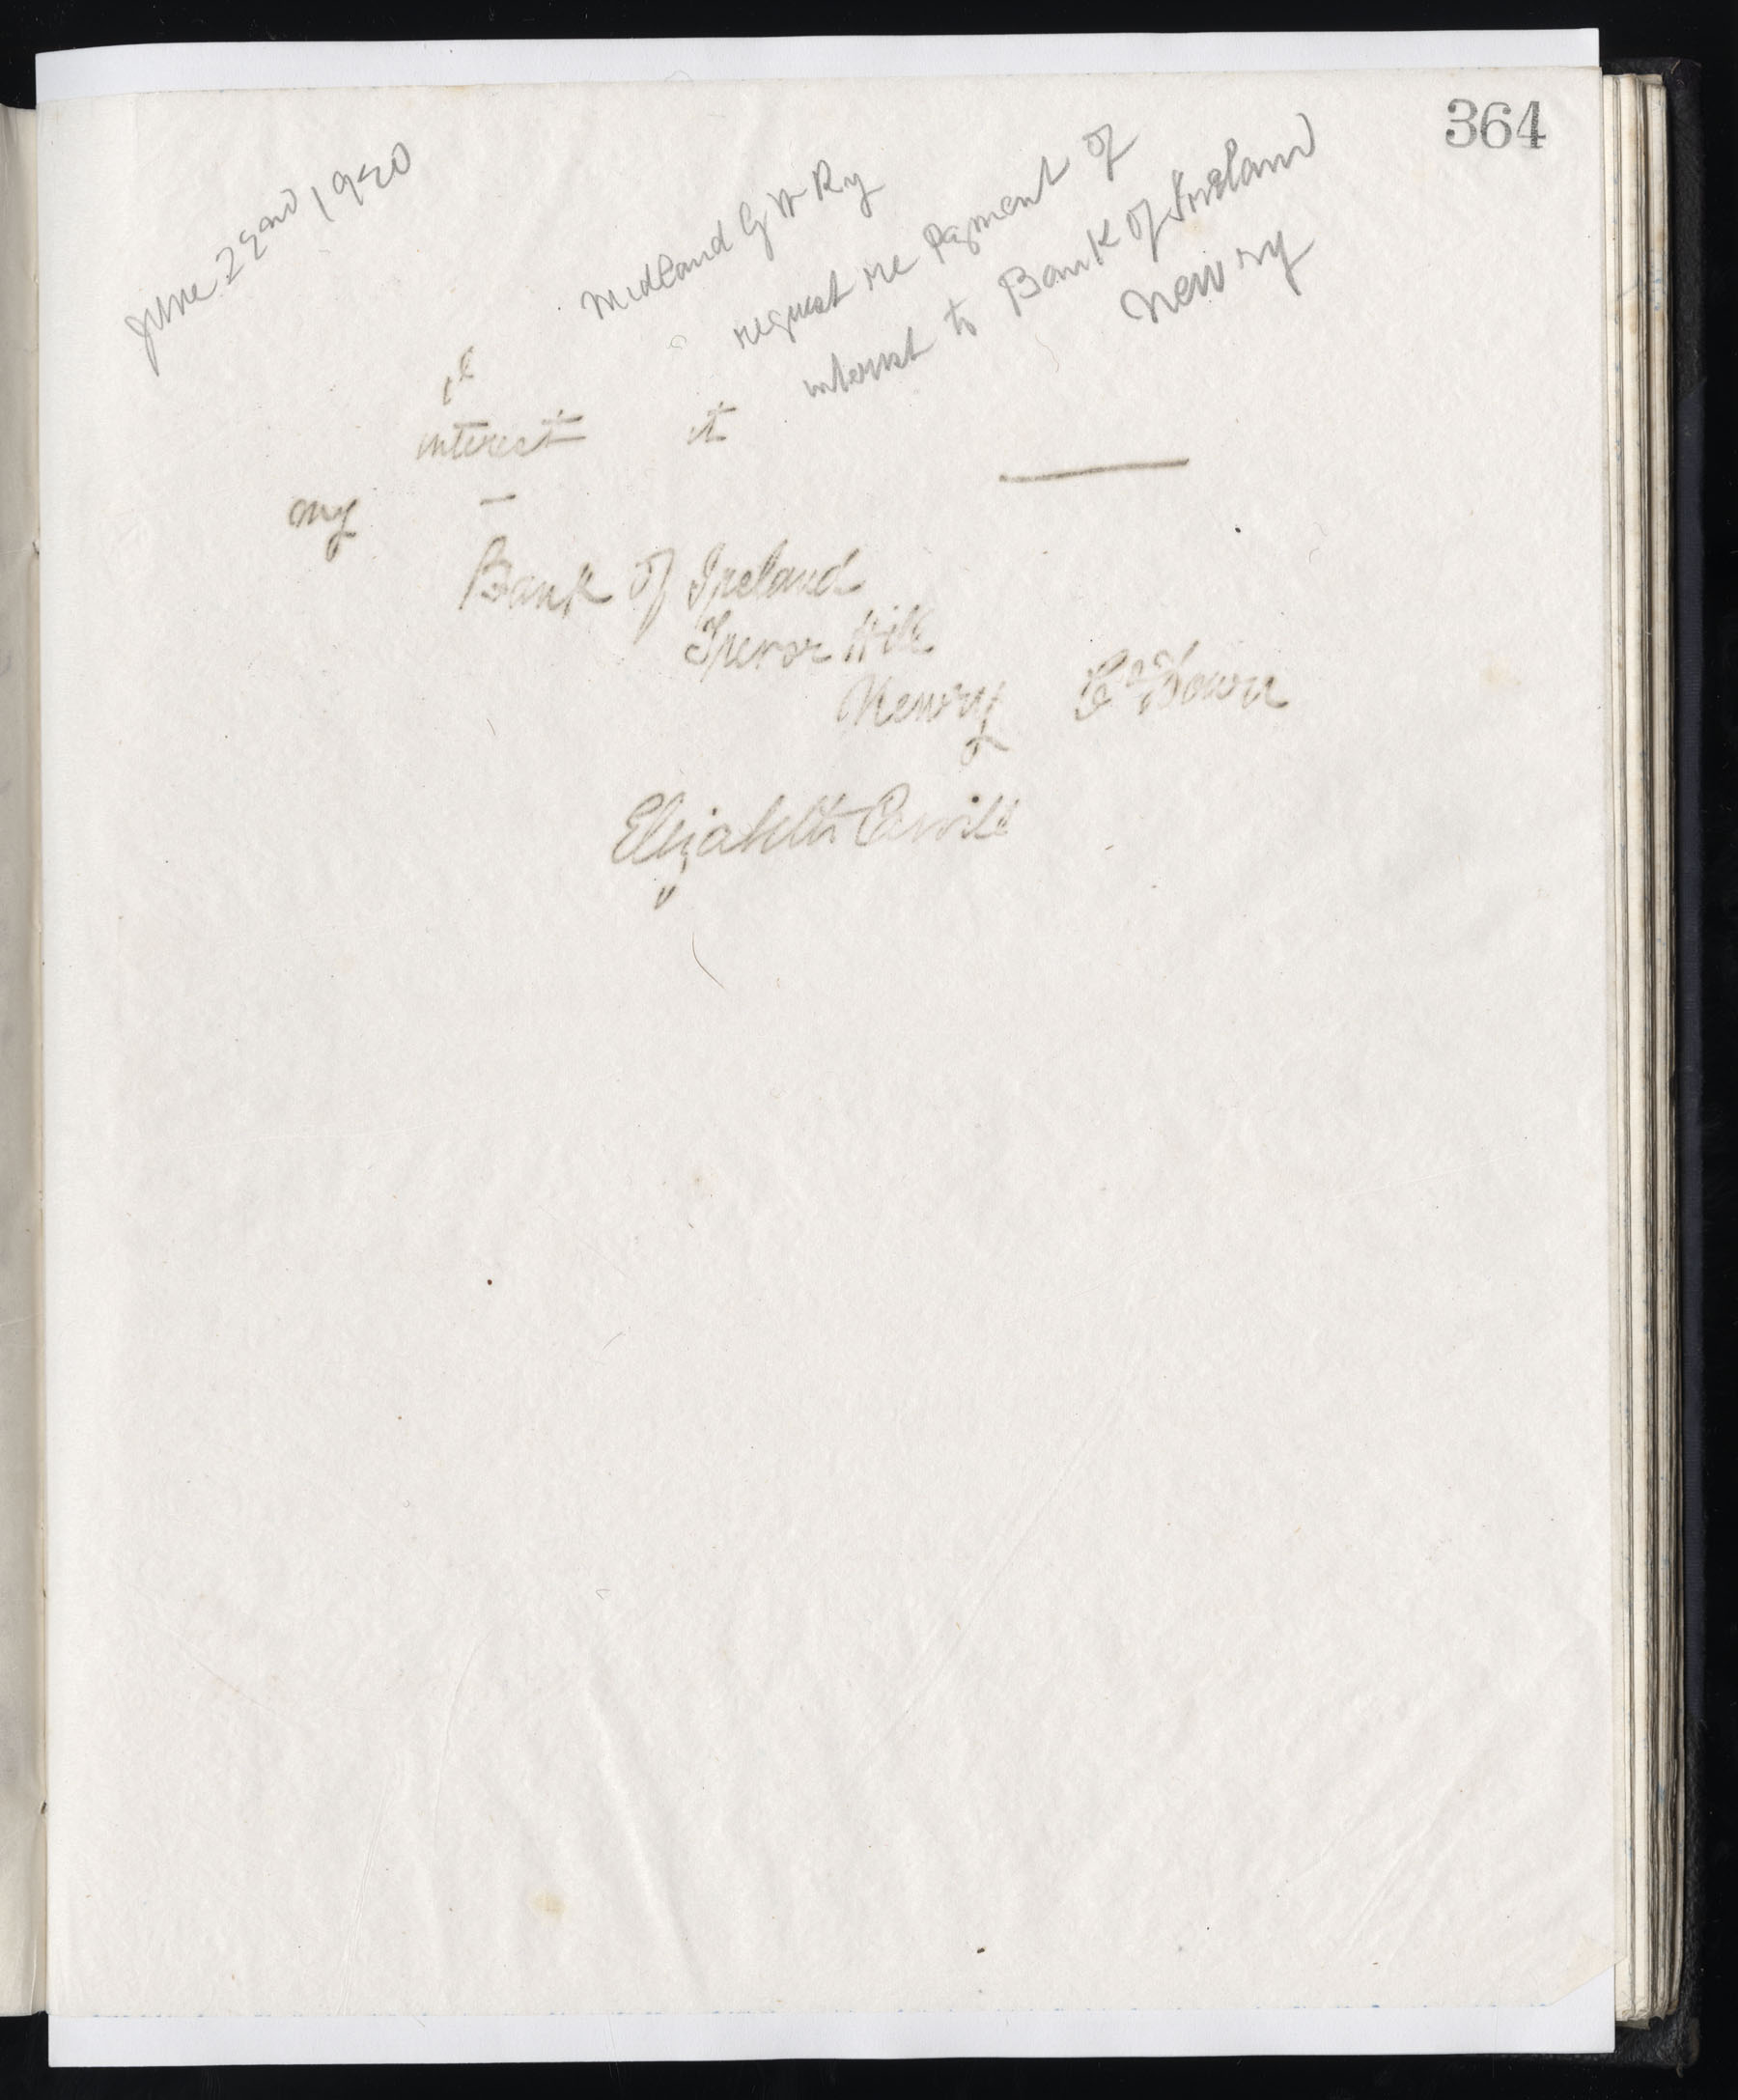 364
June 22nd 1920
Midland G W Ry
request re payment of
interest to Bank of Ireland
Newry
interest it
my —
Bank of Ireland
Trevor Hill
Newry Co Down
Elizabeth Carvill